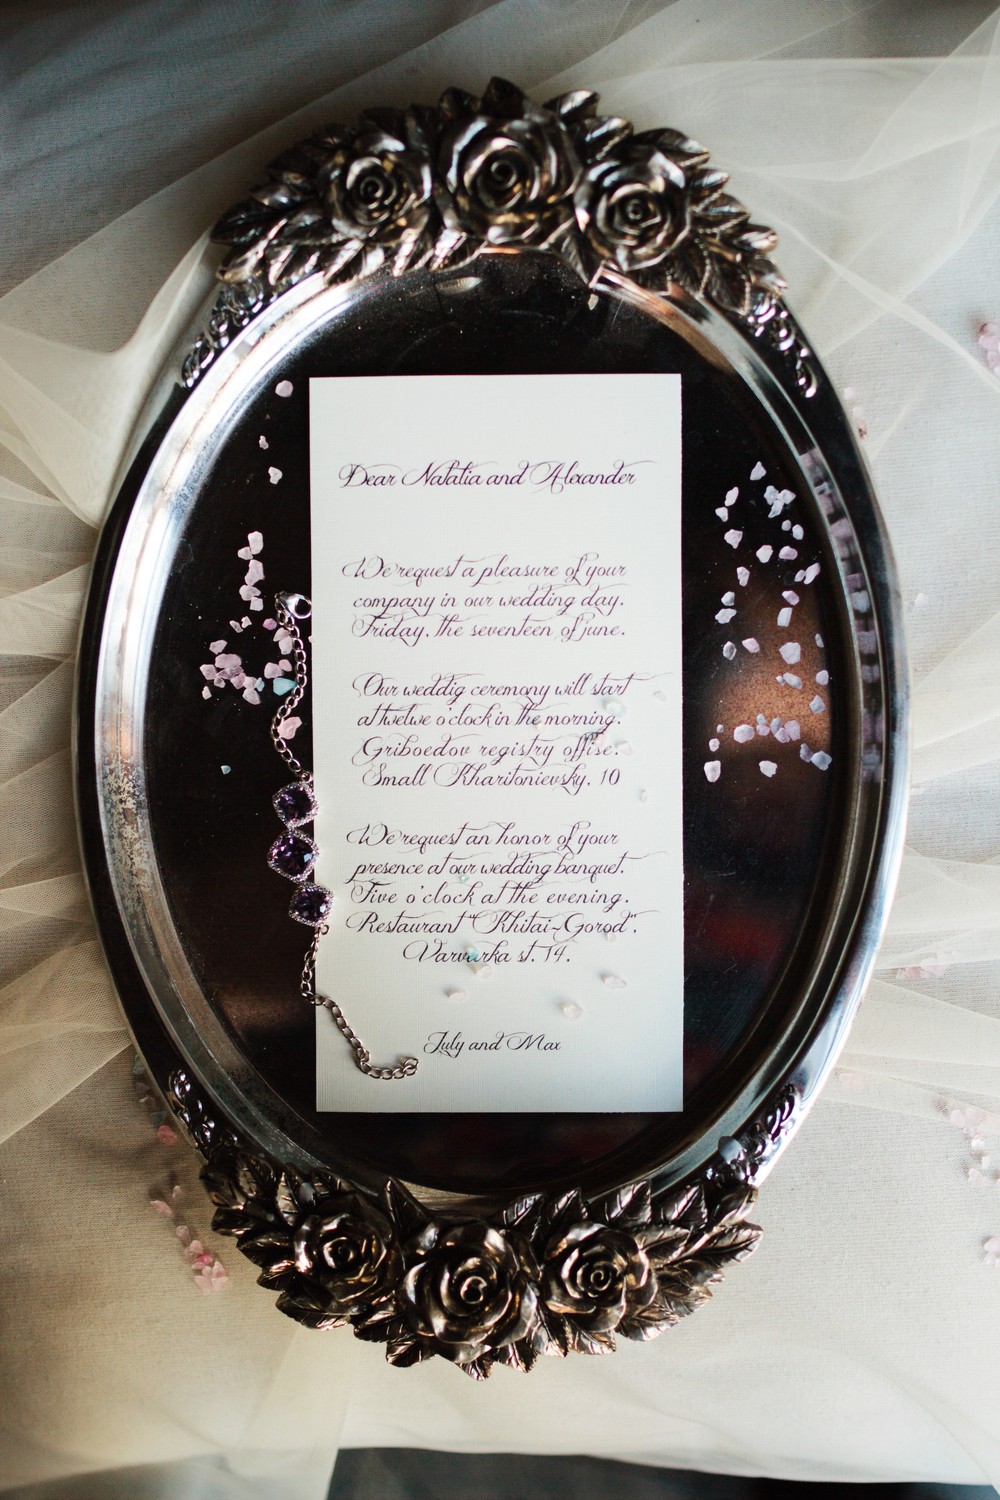 Dear Natalia and Alexander
We request a pleasure of your
company in our wedding day.
Friday, the seventeen of june.
Our weddig ceremony will start
at twelwe o'clock in the morning.
Griboedov registry offise.
Small Kharitonievsky, 10
We request an honor of your
presence at our wedding banquet.
Five o'clock at the evening.
Restaurant "Khitai-Gorod",
Varvarka st. 14.
July and Max